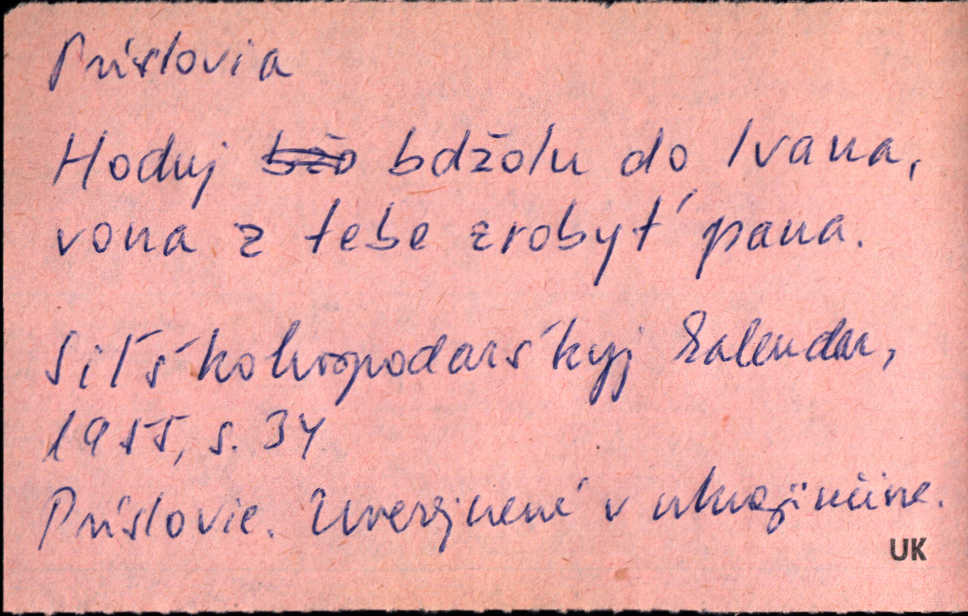 Príslovia
Hoduj bdžolu do Ivana,
vona z tebe zrobyť pana.
Siľśkohospodarśkyj kalendar,
1955, s. 34
Príslovie. Uverejnené v ukrajinčine.
UK